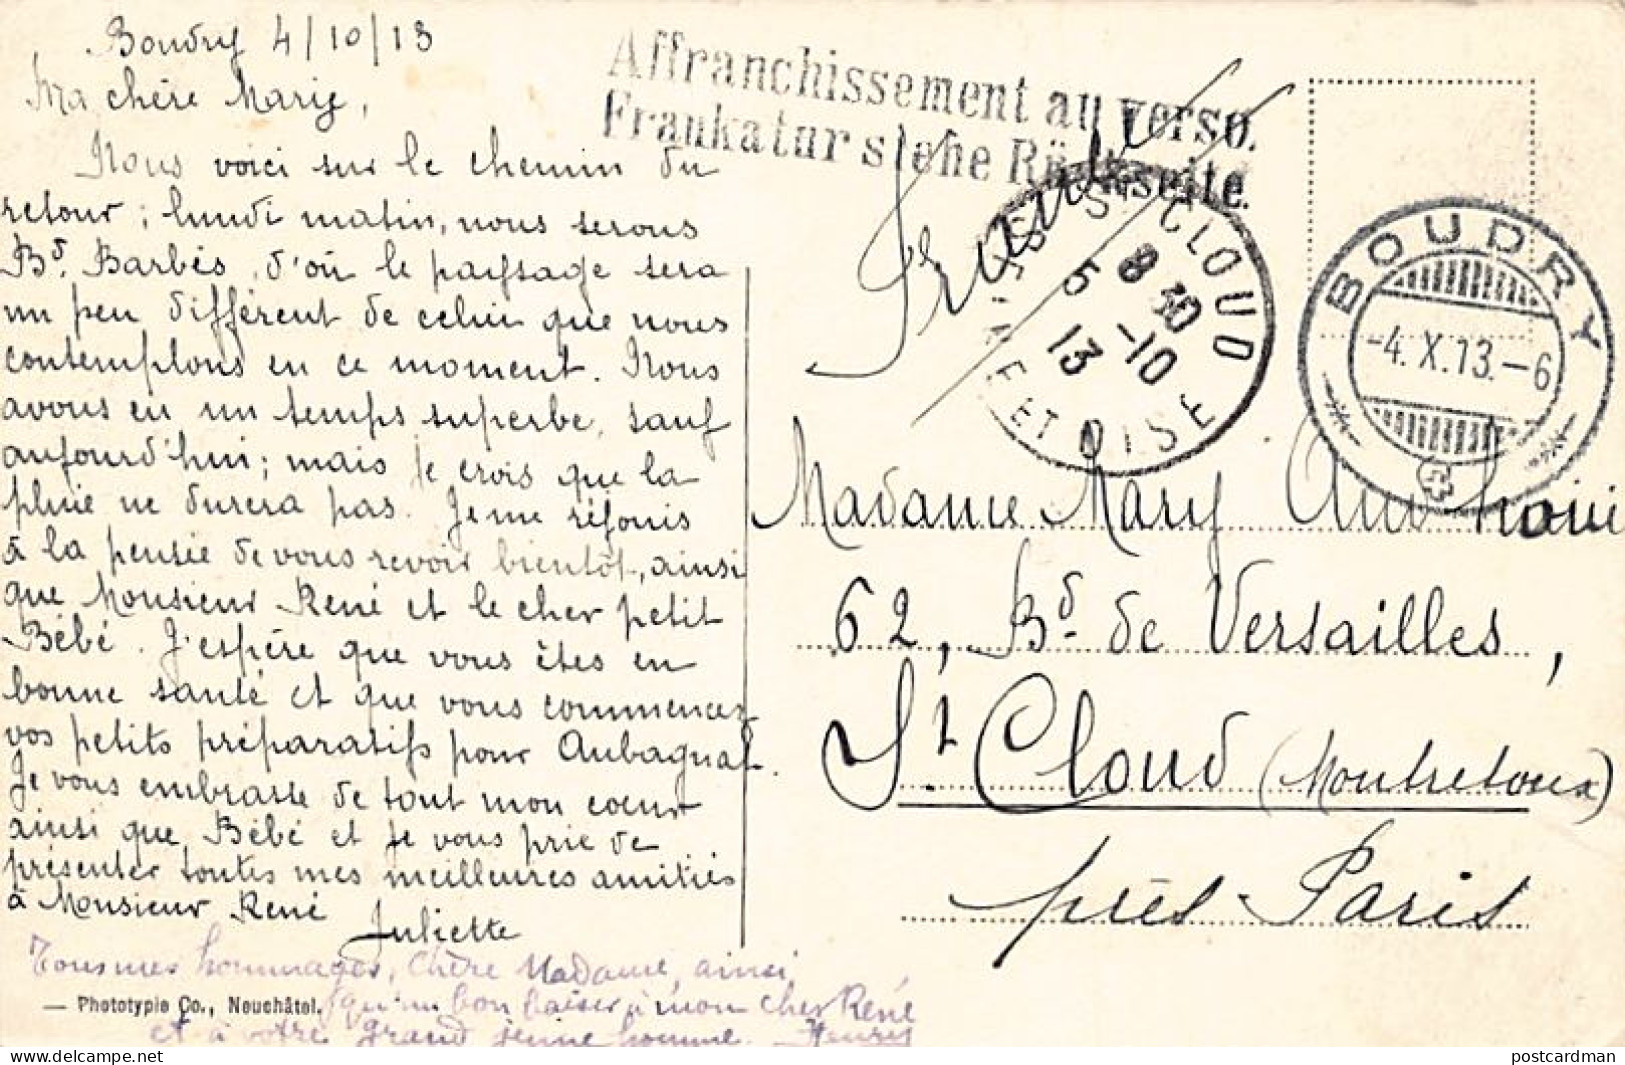 Boudry 4/10/13
Ma chère Mary,
Nous voici sur le chemin du
retour ; lundi matin, nous serons
Bd. Barbès, d'où le paysage sera
un peu différent de celui que nous
contemplons en ce moment. Nous
avons eu un temps superbe, sauf
aujourd'hui ; mais je crois que la
pluie ne durera pas. Je me réjouis
à la pensée de vous revoir bientôt, ainsi
que Monsieur René et le cher petit
Bébé. J'espère que vous êtes en
bonne santé et que vous commencez
vos petits préparatifs pour
Je vous embrasse de tout mon coeur
ainsi que Bébé et je vous prie de
présenter toutes mes meilleures amitiés
à Monsieur René
Juliette
Tous mes hommages, chère Madame, ainsi
qu'un bon baiser à mon cher René
et à votre grand jeune homme. Henry
— Phototypie Co., Neuchâtel.
Affranchissement au verso.
Frankatur siehe Rückseite.
ST CLOUD
8 30
5 -10
13
ET OISE
BOUDRY
-4.X.13.-6
Madame Mary
62, Bd de Versailles,
St Cloud (Montretoux)
près Paris
delcampe.net
postcardman